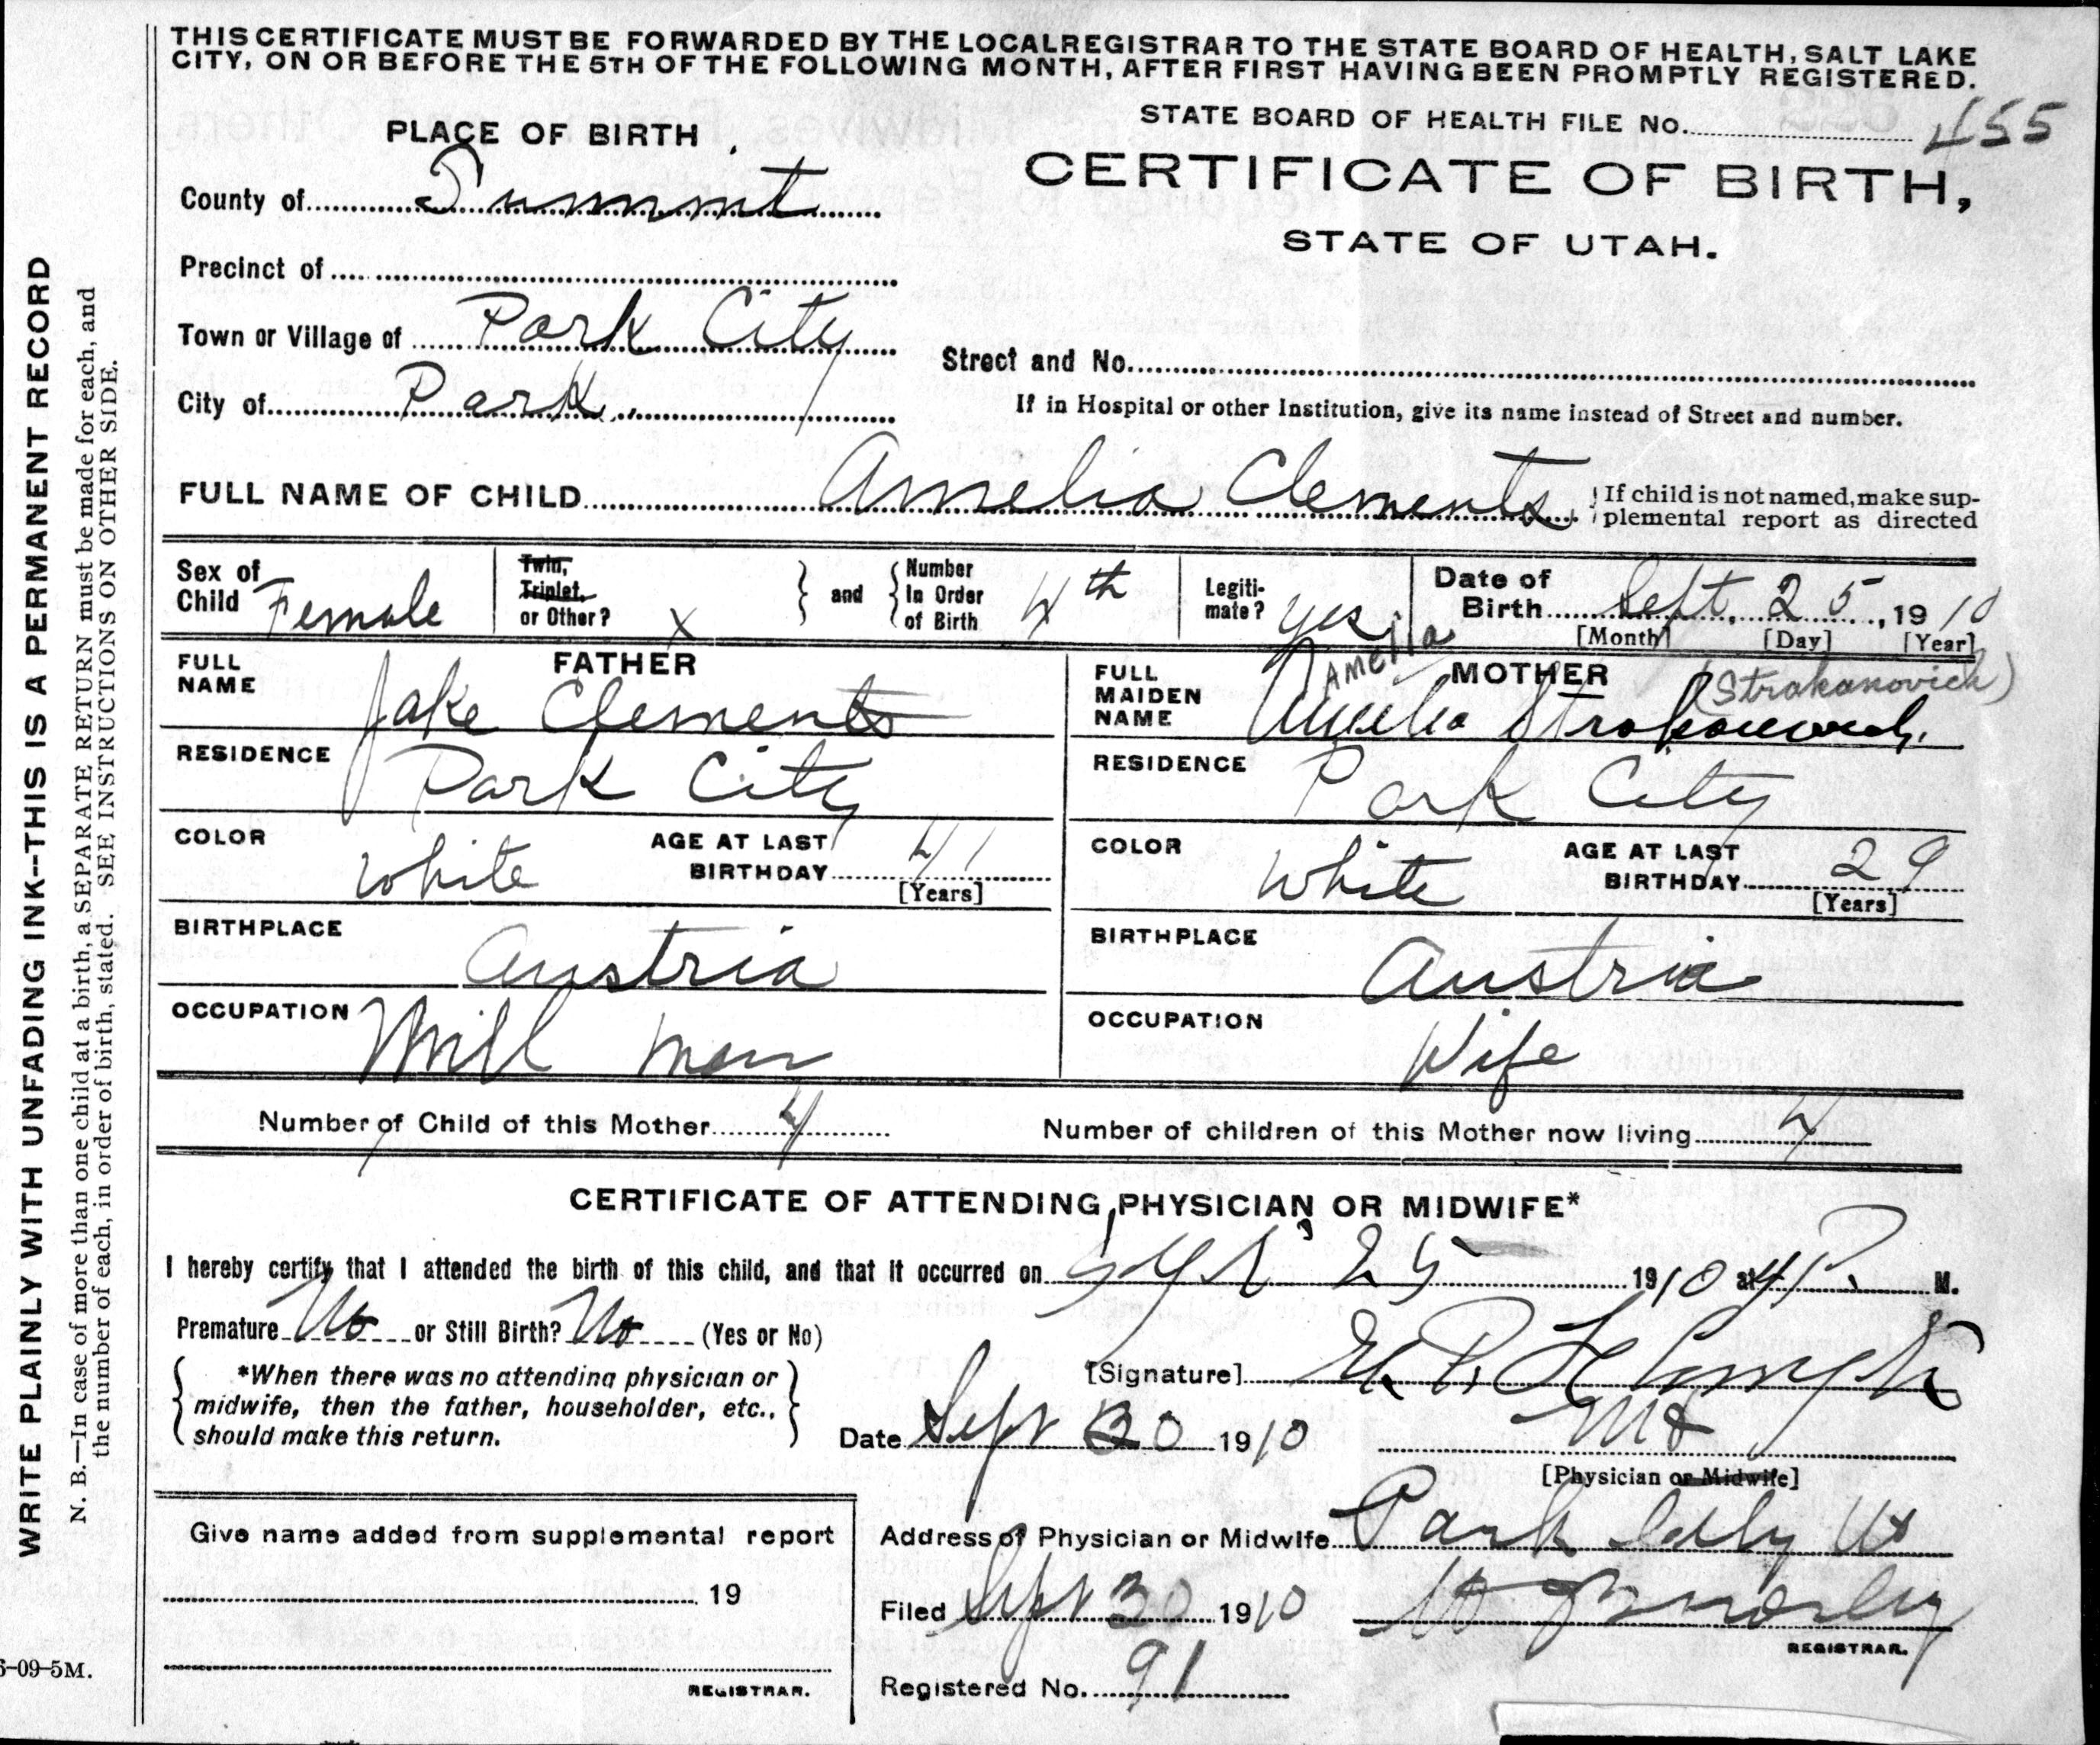 THIS CERTIFICATE MUST BE FORWARDED BY THE LOCAL REGISTRAR TO THE STATE BOARD OF HEALTH, SALT LAKE
CITY, ON OR BEFORE THE 5TH OF THE FOLLOWING MONTH, AFTER FIRST HAVING BEEN PROMPTLY REGISTERED.
STATE BOARD OF HEALTH FILE No. 455
PLACE OF BIRTH
CERTIFICATE OF BIRTH,
STATE OF UTAH.
County of Summit
Precinct of
Town or Village of Park City
Street and No.
City of Park
If in Hospital or other Institution, give its name instead of Street and number.
FULL NAME OF CHILD Amelia Clements
If child is not named, make sup-
plemental report as directed
Sex of
Child Female
Twin,
Triplet,
or Other? x
and
Number
In Order
of Birth 4th
Legiti-
mate? yes
Date of
Birth Sept. 25, 1910
[Month] [Day] [Year]
FATHER
FULL
NAME
Jake Clements
RESIDENCE
Park City
COLOR
White
AGE AT LAST
BIRTHDAY 41
[Years]
BIRTHPLACE
Austria
OCCUPATION
Mill man
MOTHER
Amelia
(Strakanovich)
FULL
MAIDEN
NAME
Amelia
RESIDENCE
Park City
COLOR
White
AGE AT LAST
BIRTHDAY 29
[Years]
BIRTHPLACE
Austria
OCCUPATION
Wife
Number of Child of this Mother 4
Number of children of this Mother now living 4
CERTIFICATE OF ATTENDING PHYSICIAN OR MIDWIFE*
I hereby certify that I attended the birth of this child, and that it occurred on Sept 25 1910 at 4 P. M.
Premature No or Still Birth? No (Yes or No)
*When there was no attending physician or
midwife, then the father, householder, etc.,
should make this return.
[Signature]
Date Sept 30 1910
[Physician or Midwife]
Give name added from supplemental report
19
REGISTRAR.
Address of Physician or Midwife Park City Ut
Filed Sept 30 1910
REGISTRAR.
Registered No. 91
WRITE PLAINLY WITH UNFADING INK--THIS IS A PERMANENT RECORD
N. B.—In case of more than one child at a birth, a SEPARATE RETURN must be made for each, and
the number of each, in order of birth, stated. SEE INSTRUCTIONS ON OTHER SIDE.
-09-5M.